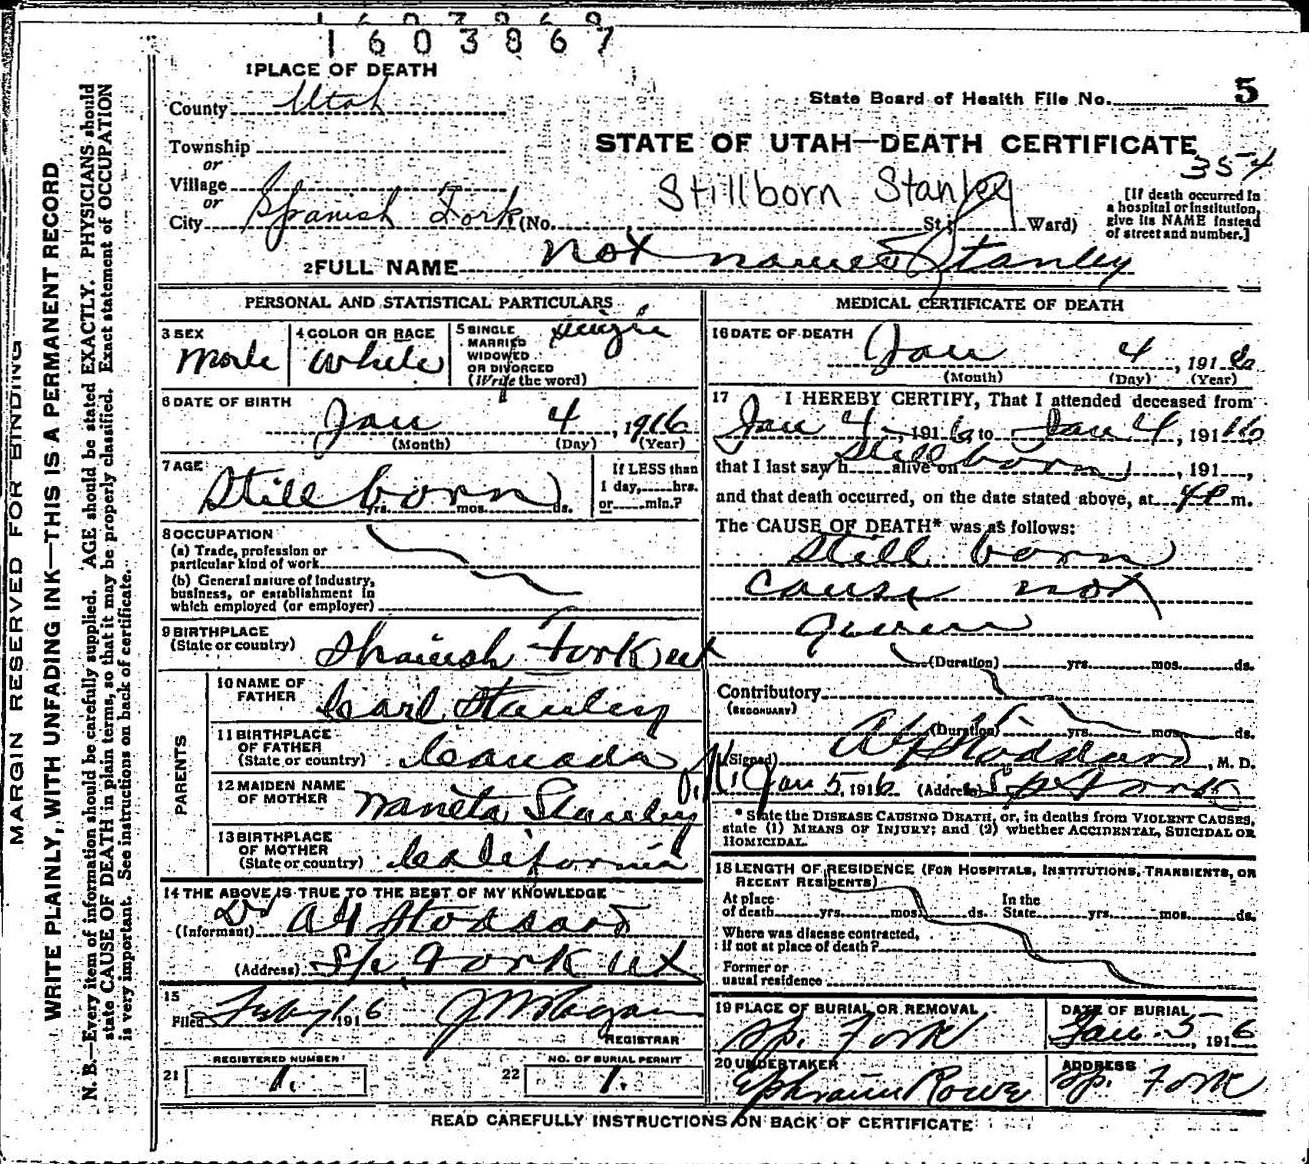 1603867
1 PLACE OF DEATH
County Utah
State Board of Health File No. 5
Township
or
Village
or
City Spanish Fork (No. St.; Ward)
STATE OF UTAH—DEATH CERTIFICATE
354
Stillborn Stanley
[If death occurred in a hospital or institution, give its NAME instead of street and number.]
2 FULL NAME not named Stanley
PERSONAL AND STATISTICAL PARTICULARS
3 SEX Male
4 COLOR OR RACE White
5 SINGLE MARRIED WIDOWED OR DIVORCED (Write the word) Single
6 DATE OF BIRTH
Jan 4, 1916
(Month) (Day) (Year)
7 AGE
Still born
yrs. mos. ds.
If LESS than 1 day, hrs. or min.?
8 OCCUPATION
(a) Trade, profession or particular kind of work
(b) General nature of industry, business, or establishment in which employed (or employer)
9 BIRTHPLACE
(State or country) Spanish Fork Ut
PARENTS
10 NAME OF FATHER Carl Stanley
11 BIRTHPLACE OF FATHER (State or country) Canada
12 MAIDEN NAME OF MOTHER Waneta Stanley
13 BIRTHPLACE OF MOTHER (State or country) California
14 THE ABOVE IS TRUE TO THE BEST OF MY KNOWLEDGE
(Informant) Dr A H Stoddard
(Address) Sp. Fork Ut
15
Filed 1916
REGISTRAR
REGISTERED NUMBER
21 1.
NO. OF BURIAL PERMIT
22 1.
MEDICAL CERTIFICATE OF DEATH
16 DATE OF DEATH
Jan 4, 1916
(Month) (Day) (Year)
17 I HEREBY CERTIFY, That I attended deceased from
Jan 4, 1916 to Jan 4, 1916
that I last saw h alive on Still born, 191
and that death occurred, on the date stated above, at 4 P m.
The CAUSE OF DEATH* was as follows:
Still born
cause not
given
(Duration) yrs. mos. ds.
Contributory
(SECONDARY)
(Duration) yrs. mos. ds.
(Signed) A H Stoddard, M. D.
Jan 5, 1916 (Address) Sp Fork
* State the DISEASE CAUSING DEATH, or, in deaths from VIOLENT CAUSES, state (1) MEANS OF INJURY; and (2) whether ACCIDENTAL, SUICIDAL OR HOMICIDAL.
18 LENGTH OF RESIDENCE (FOR HOSPITALS, INSTITUTIONS, TRANSIENTS, OR RECENT RESIDENTS)
At place of death yrs. mos. ds. In the State yrs. mos. ds.
Where was disease contracted, if not at place of death?
Former or usual residence
19 PLACE OF BURIAL OR REMOVAL
Sp. Fork
DATE OF BURIAL
Jan. 5, 1916
20 UNDERTAKER
Ephraim Rowe
ADDRESS
Sp. Fork
READ CAREFULLY INSTRUCTIONS ON BACK OF CERTIFICATE
MARGIN RESERVED FOR BINDING
WRITE PLAINLY, WITH UNFADING INK—THIS IS A PERMANENT RECORD
N. B.—Every item of information should be carefully supplied. AGE should be stated EXACTLY. PHYSICIANS should
state CAUSE OF DEATH in plain terms, so that it may be properly classified. Exact statement of OCCUPATION
is very important. See instructions on back of certificate.